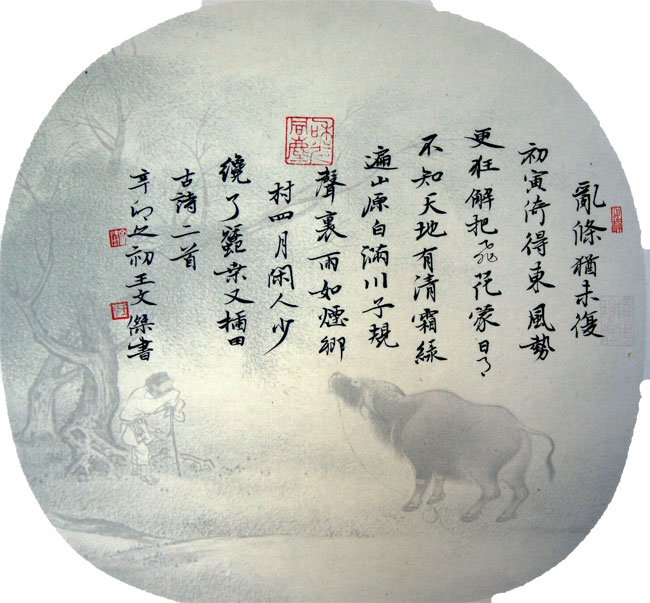 亂條猶未復
初寅渏得東風勢
更狂解把飛花蒙日月
不知天地有清霜綠
遍山源白滿川子規
聲裏雨如煙鄉
村四月闲人少
纔了蠶桑又插田
古詩二首
辛卯之初王文傑書
和光同塵